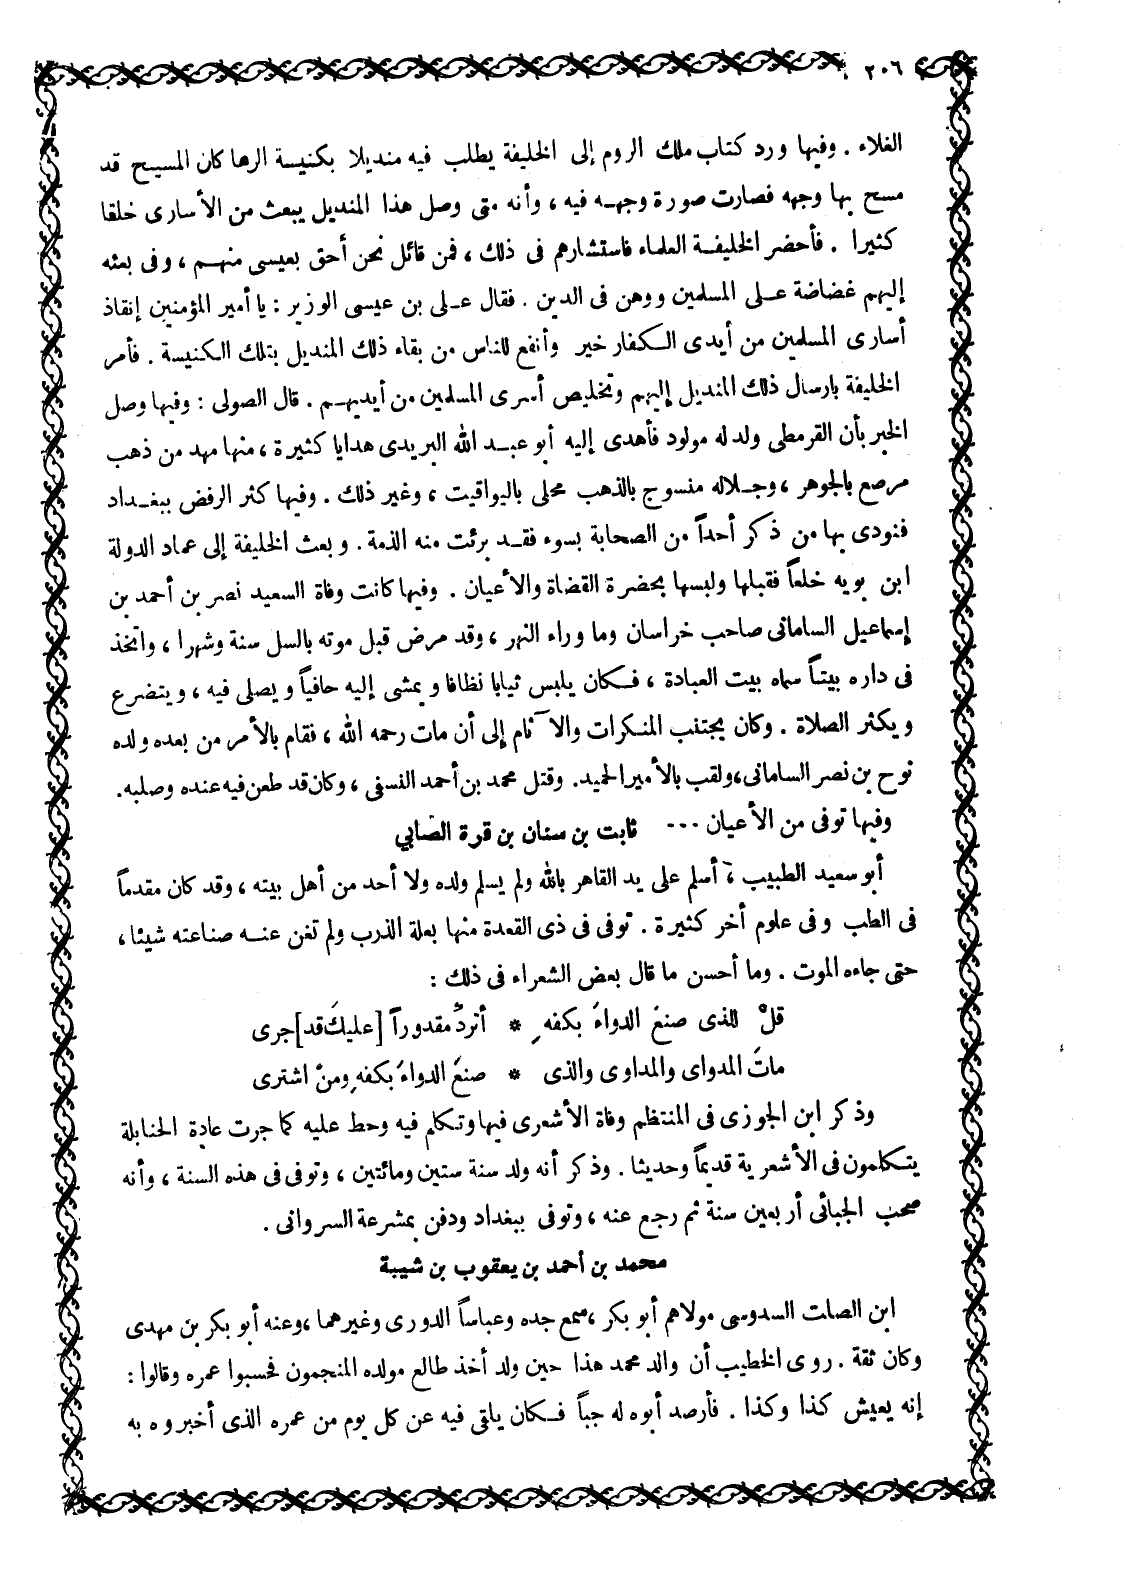 ٢٠٦
الغلاء . وفيها ورد كتاب ملك الروم إلى الخليفة يطلب فيه منديلا بكنيسة الرها كان المسيح قد
مسح بها وجهه فصارت صورة وجهه فيه ، وأنه متى وصل هذا المنديل يبعث من الأسارى خلقا
كثيرا . فأحضر الخليفة العلماء فاستشارهم فى ذلك ، فمن قائل نحن أحق بعيسى منهم ، وفى بعثه
إليهم غضاضة على المسلمين ووهن فى الدين . فقال على بن عيسى الوزير : يا أمير المؤمنين إنقاذ
أسارى المسلمين من أيدى الكفار خير وأنفع للناس من بقاء ذلك المنديل بتلك الكنيسة . فأمر
الخليفة بارسال ذلك المنديل إليهم وتخليص أسرى المسلمين من أيديهم . قال الصولى : وفيها وصل
الخبر بأن القرمطى ولد له مولود فأهدى إليه أبو عبد الله البريدى هدايا كثيرة ، منها مهد من ذهب
مرصع بالجوهر ، وجلاله منسوج بالذهب محلى باليواقيت ، وغير ذلك . وفيها كثر الرفض ببغداد
فنودى بها من ذكر أحداً من الصحابة بسوء فقد برئت منه الذمة . وبعث الخليفة إلى عماد الدولة
ابن بويه خلعاً فقبلها ولبسها بحضرة القضاة والأعيان . وفيها كانت وفاة السعيد نصر بن أحمد بن
إسماعيل السامانى صاحب خراسان وما وراء النهر ، وقد مرض قبل موته بالسل سنة وشهرا ، واتخذ
فى داره بيتاً سماه بيت العبادة ، فكان يلبس ثيابا نظافا ويمشى إليه حافياً ويصلى فيه ، ويتضرع
ويكثر الصلاة . وكان يجتنب المنكرات والآثام إلى أن مات رحمه الله ، فقام بالأمر من بعده ولده
نوح بن نصر السامانى، ولقب بالأمير الحميد. وقتل محمد بن أحمد النسفى ، وكان قد طعن فيه عنده وصلبه.
وفيها توفى من الأعيان --- ثابت بن سنان بن قرة الصابي
أبو سعيد الطبيب ، أسلم على يد القاهر بالله ولم يسلم ولده ولا أحد من أهل بيته ، وقد كان مقدماً
فى الطب وفى علوم أخر كثيرة . توفى فى ذى القعدة منها بعلة الذرب ولم تغن عنه صناعته شيئا ،
حتى جاءه الموت . وما أحسن ما قال بعض الشعراء فى ذلك :
قلْ للذى صنعَ الدواءَ بكفهِ * أتردُّ مقدوراً [عليكَ قد] جرى
ماتَ المدواى والمداوى والذى * صنعَ الدواءَ بكفهِ ومنْ اشترى
وذكر ابن الجوزى فى المنتظم وفاة الأشعرى فيها وتكلم فيه وحط عليه كما جرت عادة الحنابلة
يتكلمون فى الأشعرية قديماً وحديثا . وذكر أنه ولد سنة ستين ومائتين ، وتوفى فى هذه السنة ، وأنه
صحب الجبائى أربعين سنة ثم رجع عنه ، وتوفى ببغداد ودفن بمشرعة السروانى .
محمد بن أحمد بن يعقوب بن شيبة
ابن الصلت السدوسى مولاهم أبو بكر ، سمع جده وعباساً الدورى وغيرهما ، وعنه أبو بكر بن مهدى
وكان ثقة . روى الخطيب أن والد محمد هذا حين ولد أخذ طالع مولده المنجمون فحسبوا عمره وقالوا :
إنه يعيش كذا وكذا . فأرصد أبوه له جباً فكان يلقى فيه عن كل يوم من عمره الذى أخبروه به